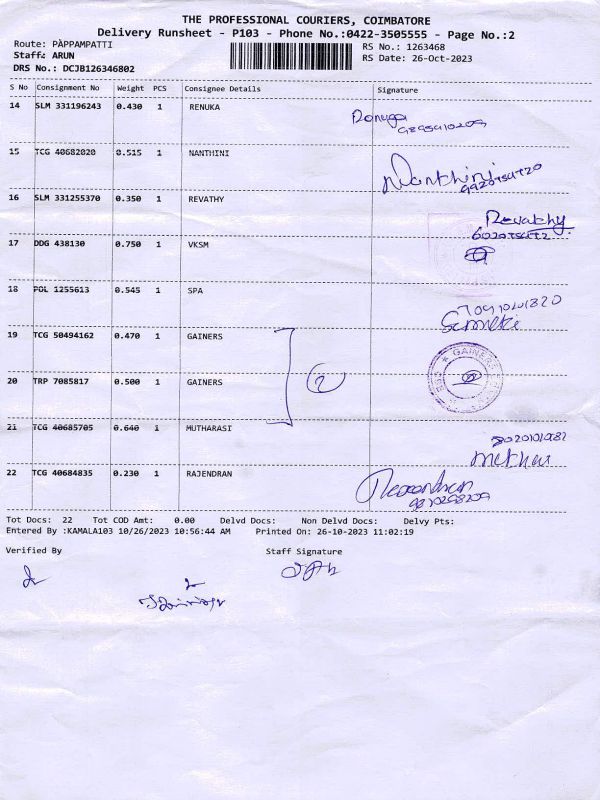 THE PROFESSIONAL COURIERS, COIMBATORE
Delivery Runsheet - P103 - Phone No.:0422-3505555 - Page No.:2
Route: PAPPAMPATTI
Staff: ARUN
DRS No.: DCJB126346802
RS No.: 1263468
RS Date: 26-Oct-2023
S No Consignment No Weight PCS Consignee Details Signature
14 SLM 331196243 0.430 1 RENUKA
15 TCG 40682020 0.515 1 NANTHINI Nanthini
16 SLM 331255370 0.350 1 REVATHY Revathy
17 DDG 438130 0.750 1 VKSM
18 PGL 1255613 0.545 1 SPA
19 TCG 50494162 0.470 1 GAINERS
GAINERS
20 TRP 7085817 0.500 1 GAINERS 2
21 TCG 40685705 0.640 1 MUTHARASI
22 TCG 40684835 0.230 1 RAJENDRAN
Tot Docs: 22 Tot COD Amt: 0.00 Delvd Docs: Non Delvd Docs: Delvy Pts:
Entered By :KAMALA103 10/26/2023 10:56:44 AM Printed On: 26-10-2023 11:02:19
Verified By Staff Signature